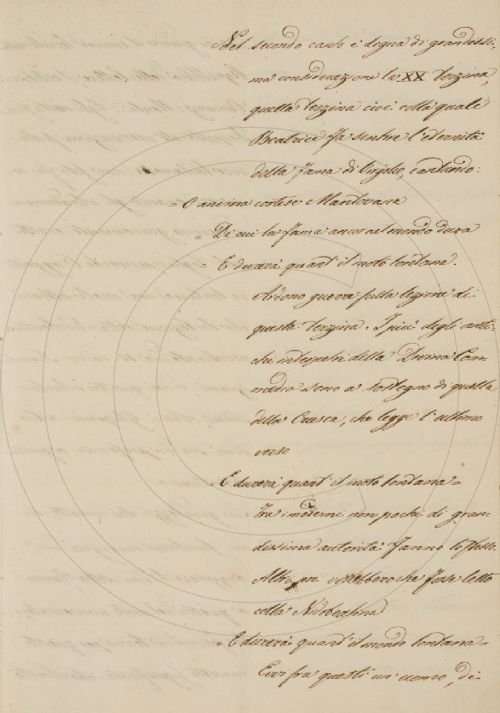 Nel secondo canto è degna di grandissi-
ma considerazione la XX terzina,
quella terzina cioè colla quale
Beatrice fa sentire l'eternità
della fama di Virgilio, cantando:
= O anima cortese Mantovana
= Di cui la fama ancor nel mondo dura
= E durerà quant' il moto lontana.
Ardono guerre sulla lezione di
questa terzina. I più degli anti-
chi interpetri della Divina Com-
media sono a sostegno di quella
della Crusca, che legge l'ultimo
verso
= E durerà quant' il moto lontana =
Tra i moderni non pochi di gran-
dissima autorità fanno lo stesso.
Altri poi vorrebbero che fosse letto
colla Nidobeatina
= E durerà quant' il mondo lontana =
Evvi fra questi un uomo, di